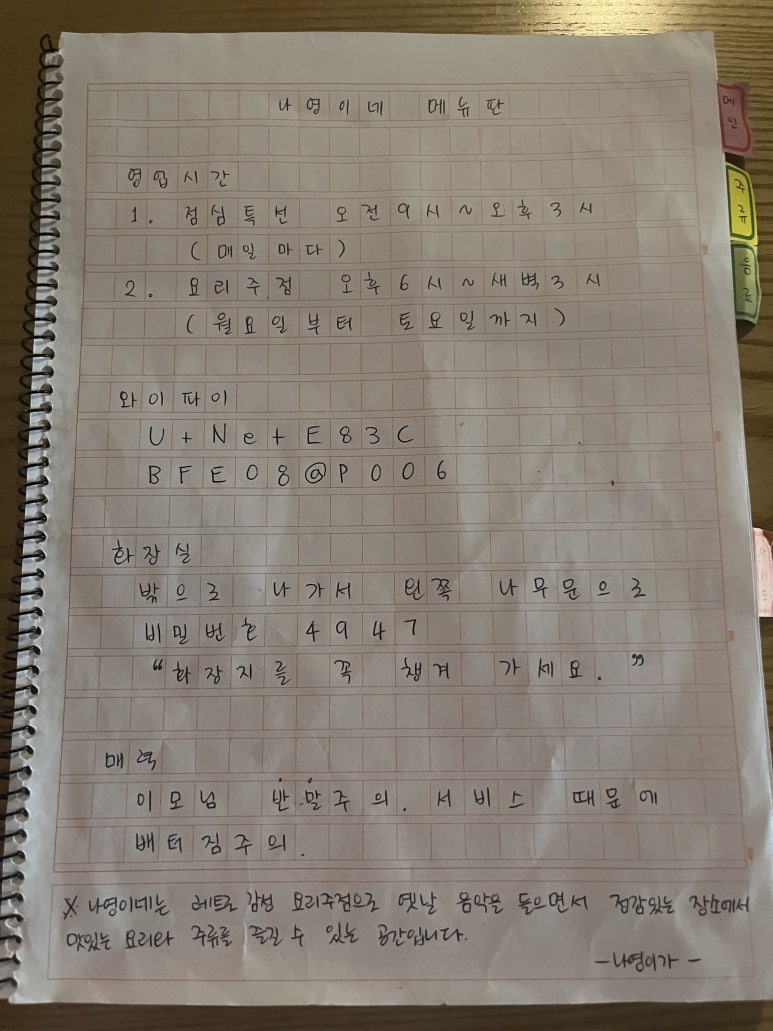 나영이네 메뉴판
영업시간
1. 점심특선 오전9시~오후3시
(매일마다)
2. 요리주점 오후6시~새벽3시
(월요일부터 토요일까지)
와이파이
U+NetE83C
BFE08@P006
화장실
밖으로 나가서 왼쪽 나무문으로
비밀번호 4947
“화장지를 꼭 챙겨 가세요.”
매력
이모님 반말주의. 서비스 때문에
배터짐주의.
※ 나영이네는 레트로 감성 요리주점으로 옛날 음악을 들으면서 정감있는 장소에서
맛있는 요리와 주류를 즐길 수 있는 공간입니다.
-나영이가-
메인
주류
음료
사이드